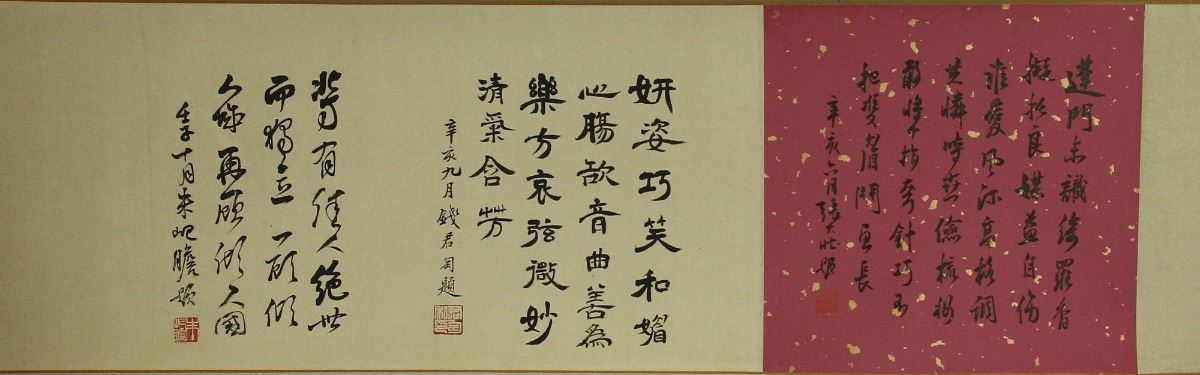 蓬門未識綺羅香
擬託良媒益自傷
誰愛風流高格調
共憐時世儉梳妝
敢將十指夸針巧不
把雙眉鬥画長
辛亥六月張大壯題
妍姿巧笑和媚
心腸知音曲善為
樂方哀弦微妙
清氣含芳
辛亥九月錢君匋題
北方有佳人絕世
而獨立一顧傾
人城再顧傾人國
壬子十月朱屺瞻題